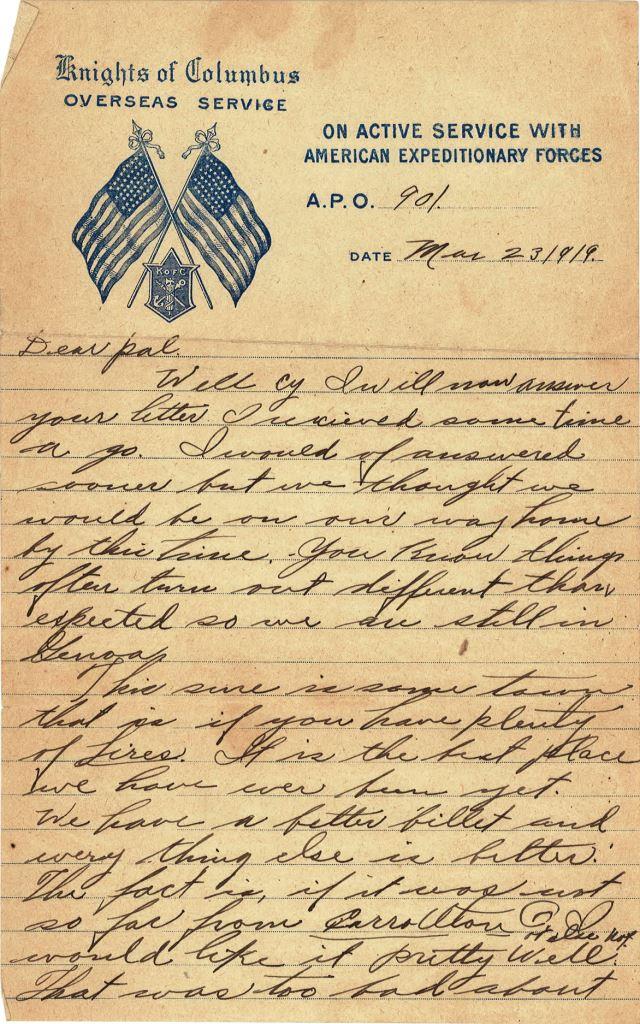 Knights of Columbus
OVERSEAS SERVICE
ON ACTIVE SERVICE WITH
AMERICAN EXPEDITIONARY FORCES
A.P.O. 901.
DATE Mar 23/919.
K of C
Dear pal.
Well Cy I will now answer
your letter I recieved some time
a go. I would of answered
sooner but we thought we
would be on our way home
by this time. You Know things
often turn out different than
expected so we are still in
Genoa.
This sure is some town
that is if you have plenty
of Lires. It is the best place
we have ever been yet.
We have a better billet and
every thing else is better.
The fact is, if it was not
so far from Carrollton
would like it pretty well.
That was too bad about